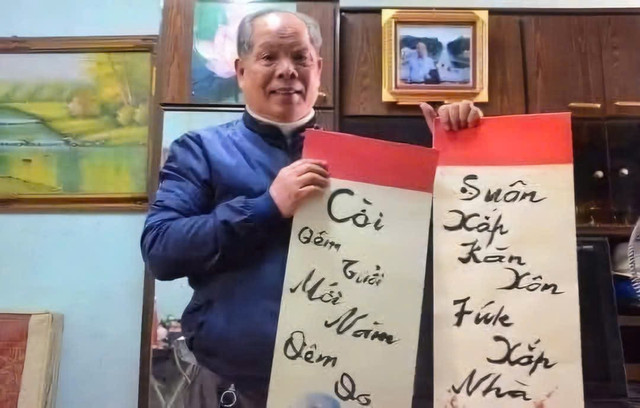 Còi
Qêm
Tuổi
Mới
Năm
Qêm
Qọ
Suân
Xắp
Kàn
Xôn
Fúk
Xắp
Nhà